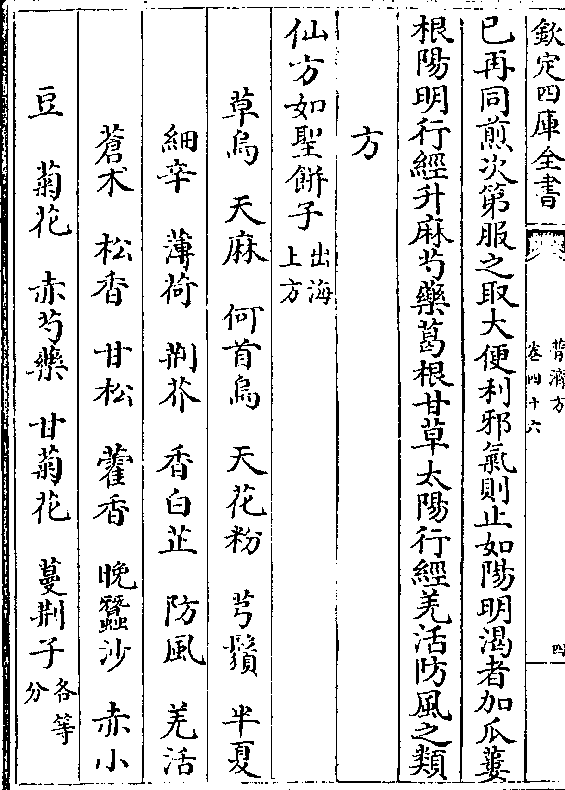 欽定四庫全書
普濟方
卷四十六
四
已再同煎次第服之取大便利邪氣則止如陽明渴者加瓜蔞
根陽明行經升麻芍藥葛根甘草太陽行經羌活防風之類
方
仙方如聖餅子出海上方
草烏 天麻 何首烏 天花粉 芎鬚 半夏
細辛 薄荷 荆芥 香白芷 防風 羌活
蒼朮 松香 甘松 藿香 晩蠶沙 赤小
豆 菊花 赤芍藥 甘菊花 蔓荆子各等分